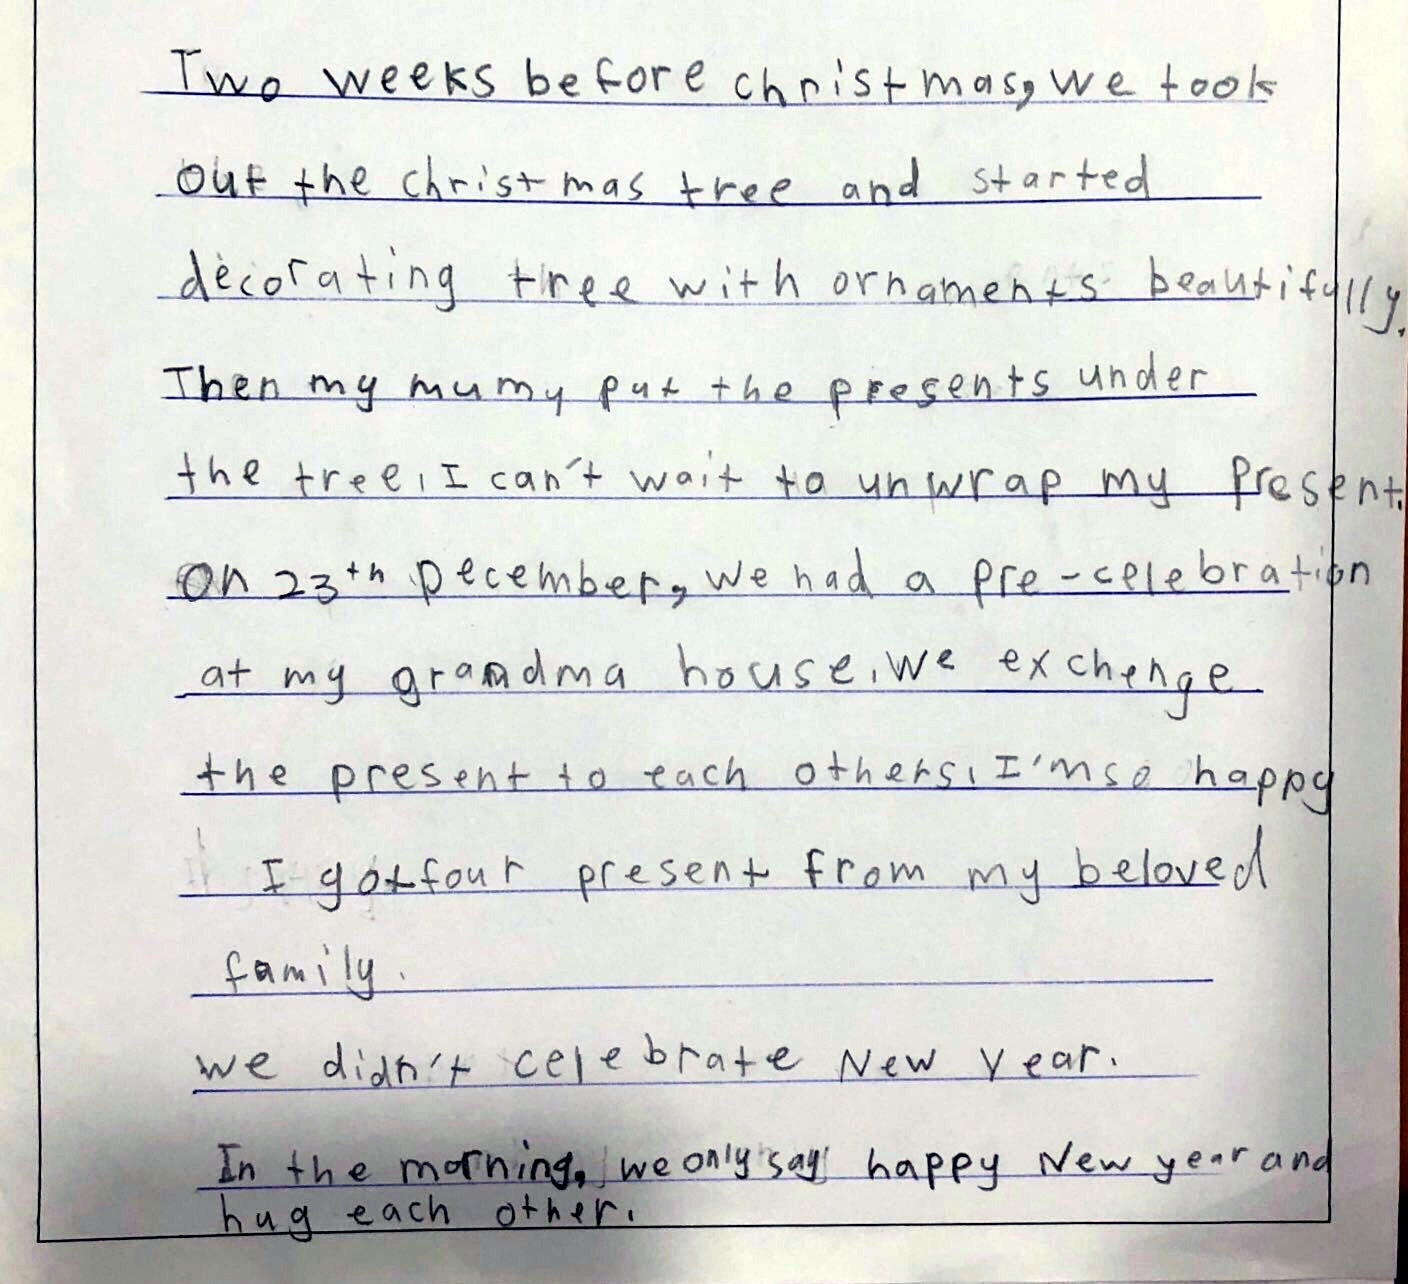 Two weeks before christmas, we took
out the christmas tree and started
decorating tree with ornaments beautifully.
Then my mumy put the presents under
the tree. I can't wait to unwrap my present.
On 23th December, we had a pre-celebration
at my grandma house. We exchenge
the present to each others. I'm so happy
I got four present from my beloved
family.
we didn't celebrate New Year.
In the morning, we only say happy New year and
hug each other.